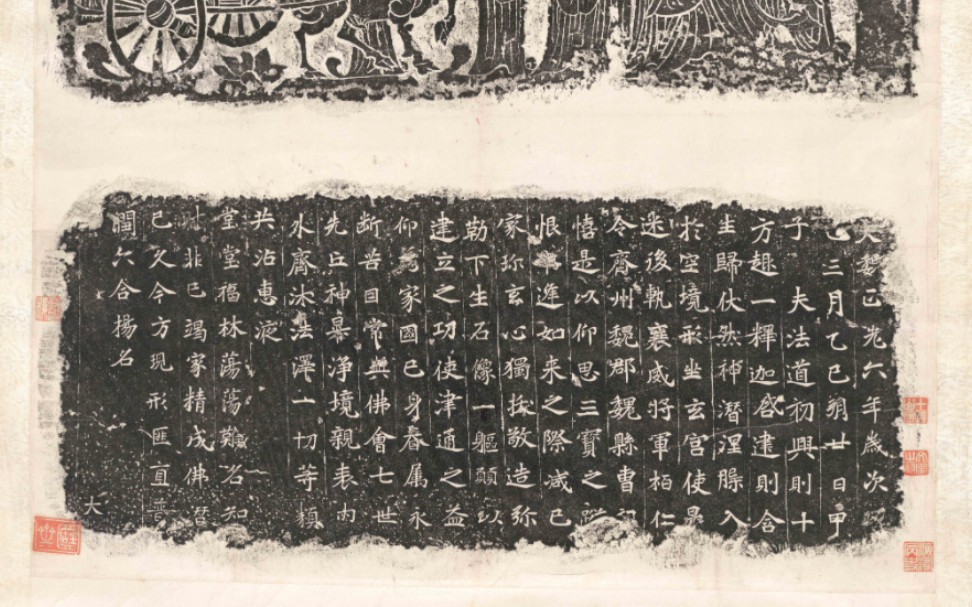 大魏正光六年歲次
巳三月乙巳朔廿日甲
子夫法道初興則十
方趄一釋迦啓建則含
生歸伏然神潛涅槃入
於空境形坐玄宮使愚
迷後軌襄威將軍柏仁
令齊州魏郡魏縣曹望
憘是以仰思三寶之蹤
恨未逢如来之際减己
家珎玄心獨拔敬造弥
勒下生石像一軀願以
建立之功使津通之益
仰為家國己身眷属永
断苦因常與佛會七世
先亡神慕淨境親表内
外齊沐法澤一切等類
共沾惠液
堂堂福林蕩蕩難名知
財非己竭家精成佛潛
已久今方現形匪直普
潤六合揚名
大